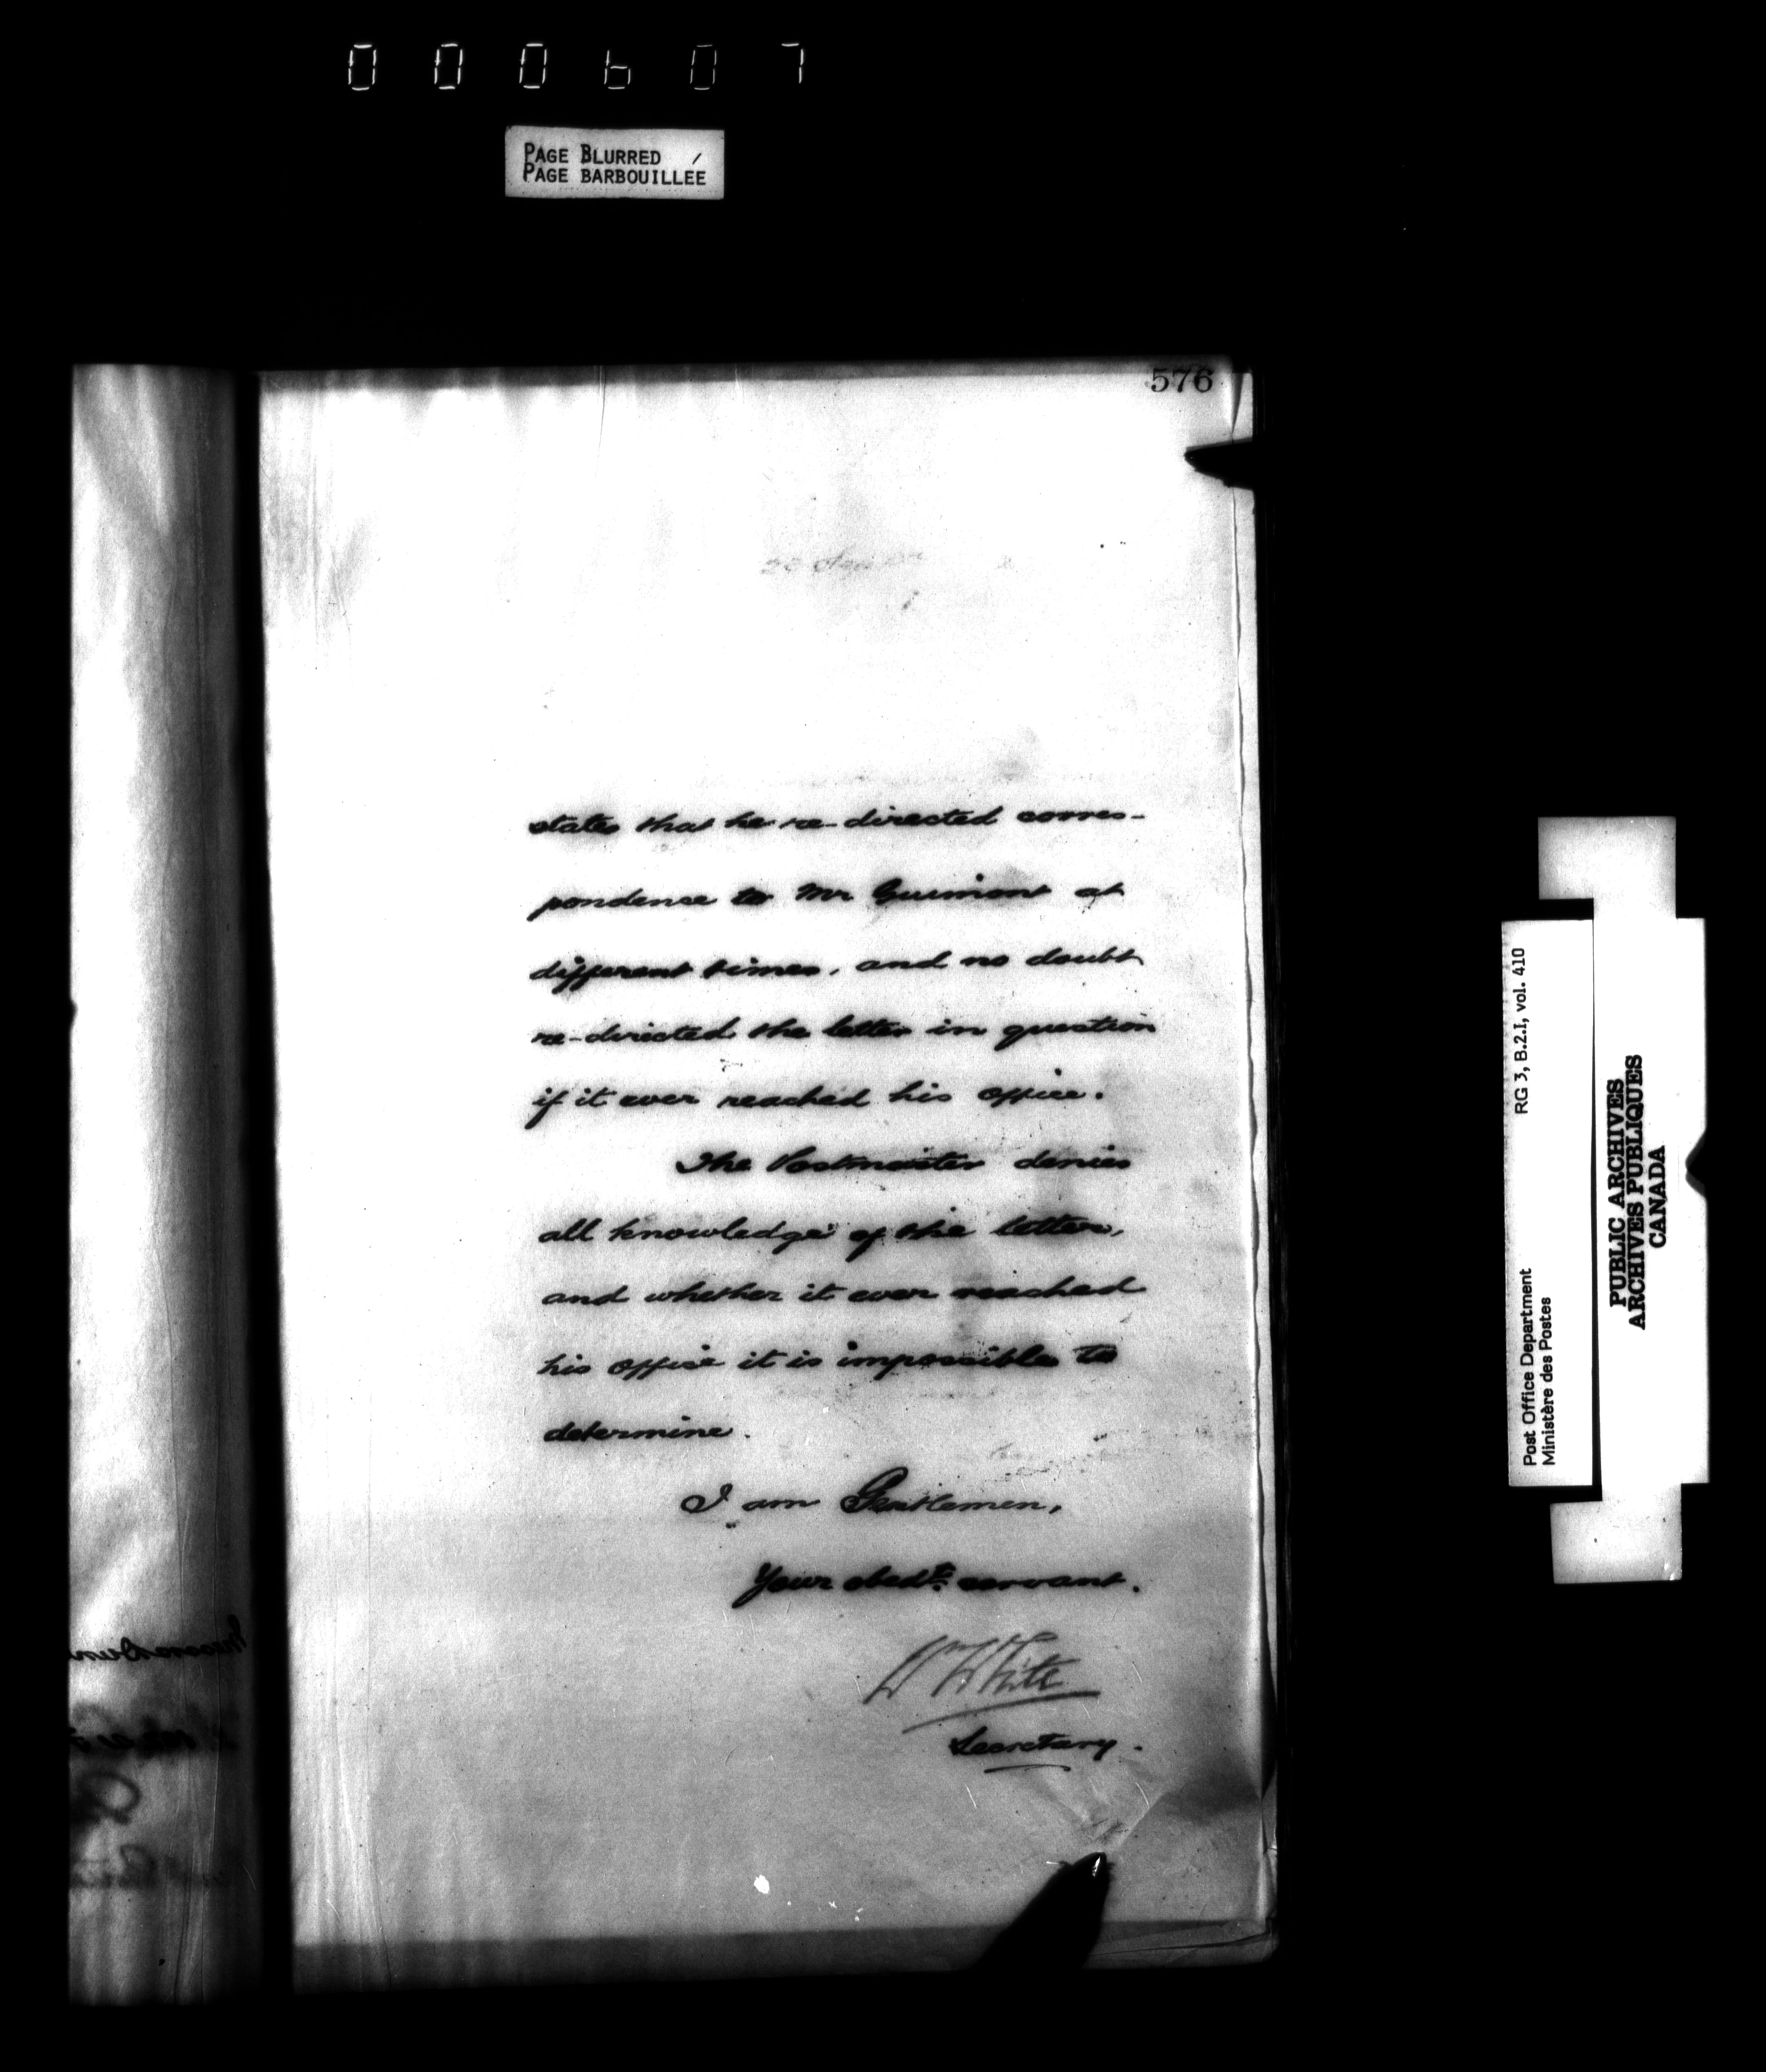 000607
PAGE BLURRED
PAGE BARBOUILLÉE
576
states that he re-directed corres-
pondence to Mr Guimont at
different times, and no doubt
re-directed the letter in question
if it ever reached his office.
The Postmaster denies
all knowledge of the letter,
and whether it ever reached
his office it is impossible to
determine.
I am Gentlemen,
Your obedt. servant.
Wm White
Secretary.
RG 3, B.2.I, vol. 410
Post Office Department
Ministère des Postes
PUBLIC ARCHIVES
ARCHIVES PUBLIQUES
CANADA